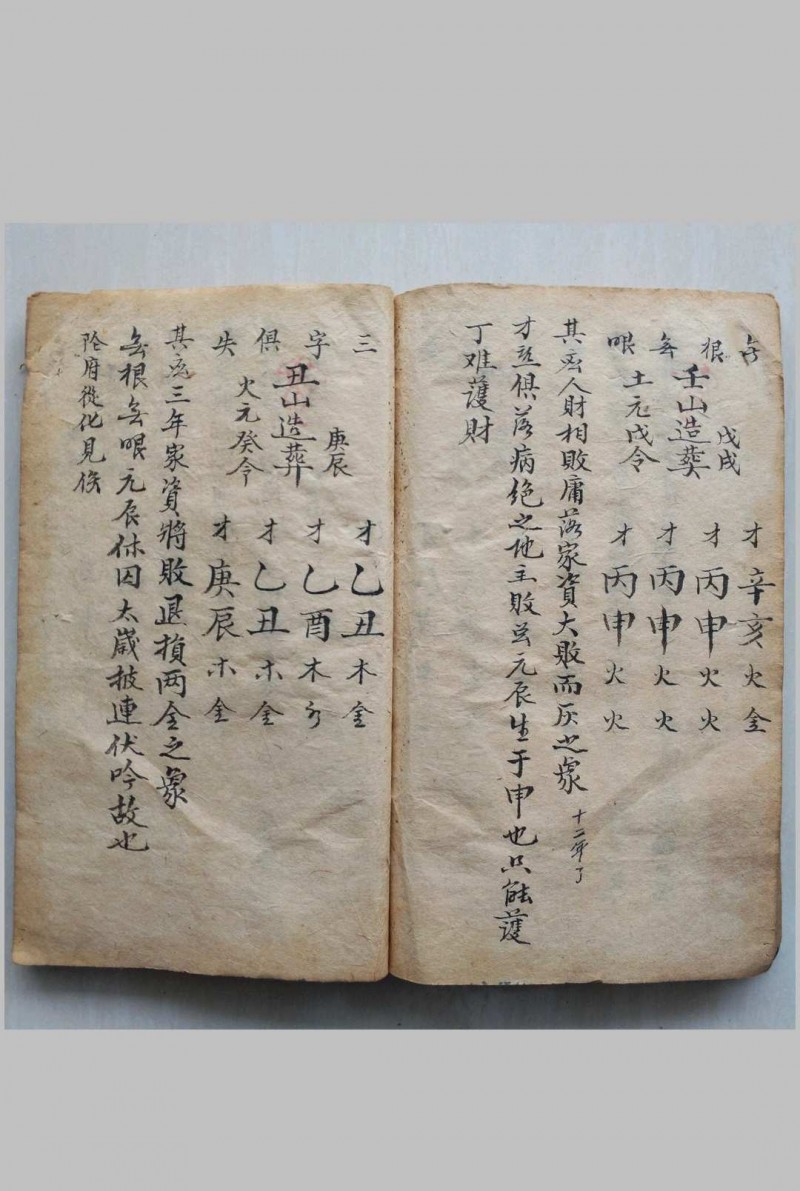 無根無眼
戊戌
壬山造葬
土元戊令
才辛亥火金
才丙申火火
才丙申火火
才丙申火火
其应人財相敗庸落家資大敗而灰之象
十二年了
才並俱落病绝之地主敗兹元辰生于申也只能護
丁难護財
三字俱失
庚辰
丑山造葬
火元癸令
才乙丑木金
才乙酉木水
才乙丑木金
才庚辰木金
其应三年家資將敗退損两全之象
無根無眼元辰休囚太歲披連伏吟故也
陰府從化見